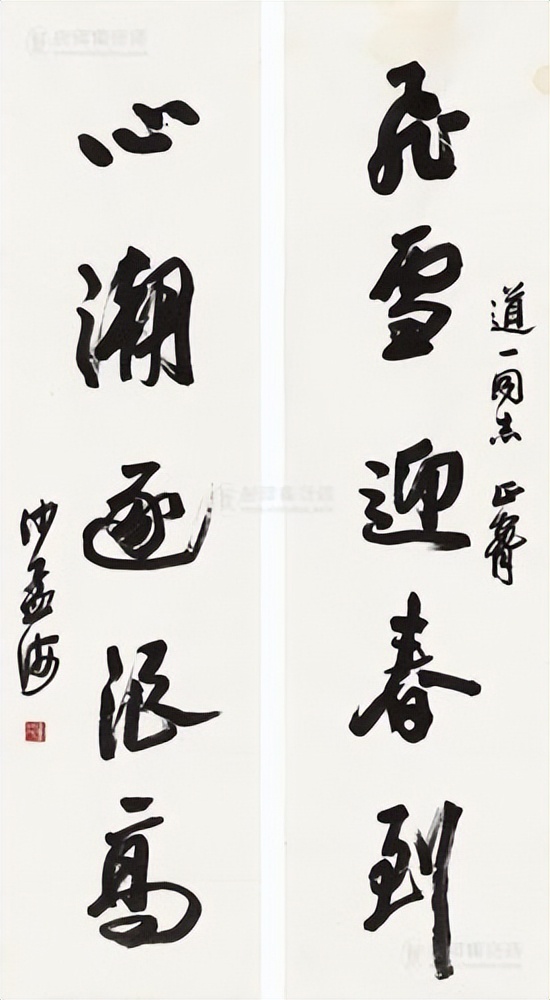 道一同志 正
飛雪迎春到
心潮逐浪高
沙孟海